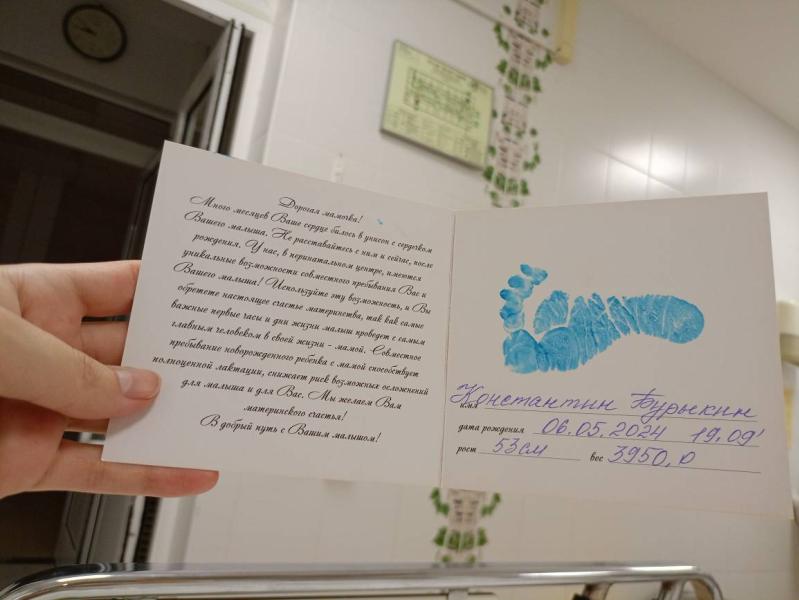 Дорогая мамочка!
Много месяцев Ваше сердце билось в унисон с сердечком
Вашего малыша. Не расставайтесь с ним и сейчас, после
рождения. У нас, в перинатальном центре, имеются
уникальные возможности совместного пребывания Вас и
Вашего малыша! Используйте эту возможность, и Вы
обретете настоящее счастье материнства, так как самые
важные первые часы и дни жизни малыш проведет с самым
главным человеком в своей жизни - мамой. Совместное
пребывание новорожденного ребенка с мамой способствует
полноценной лактации, снижает риск возможных осложнений
для малыша и для Вас. Мы желаем Вам
материнского счастья!
В добрый путь с Вашим малышом!
имя Константин Бурыкин
дата рождения 06.05.2024 19.09'
рост 53см вес 3950,0